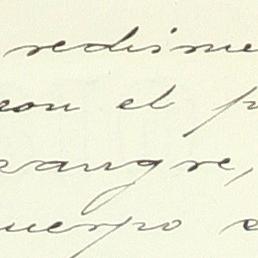 redime
con el p
sangre,
cuerpo e